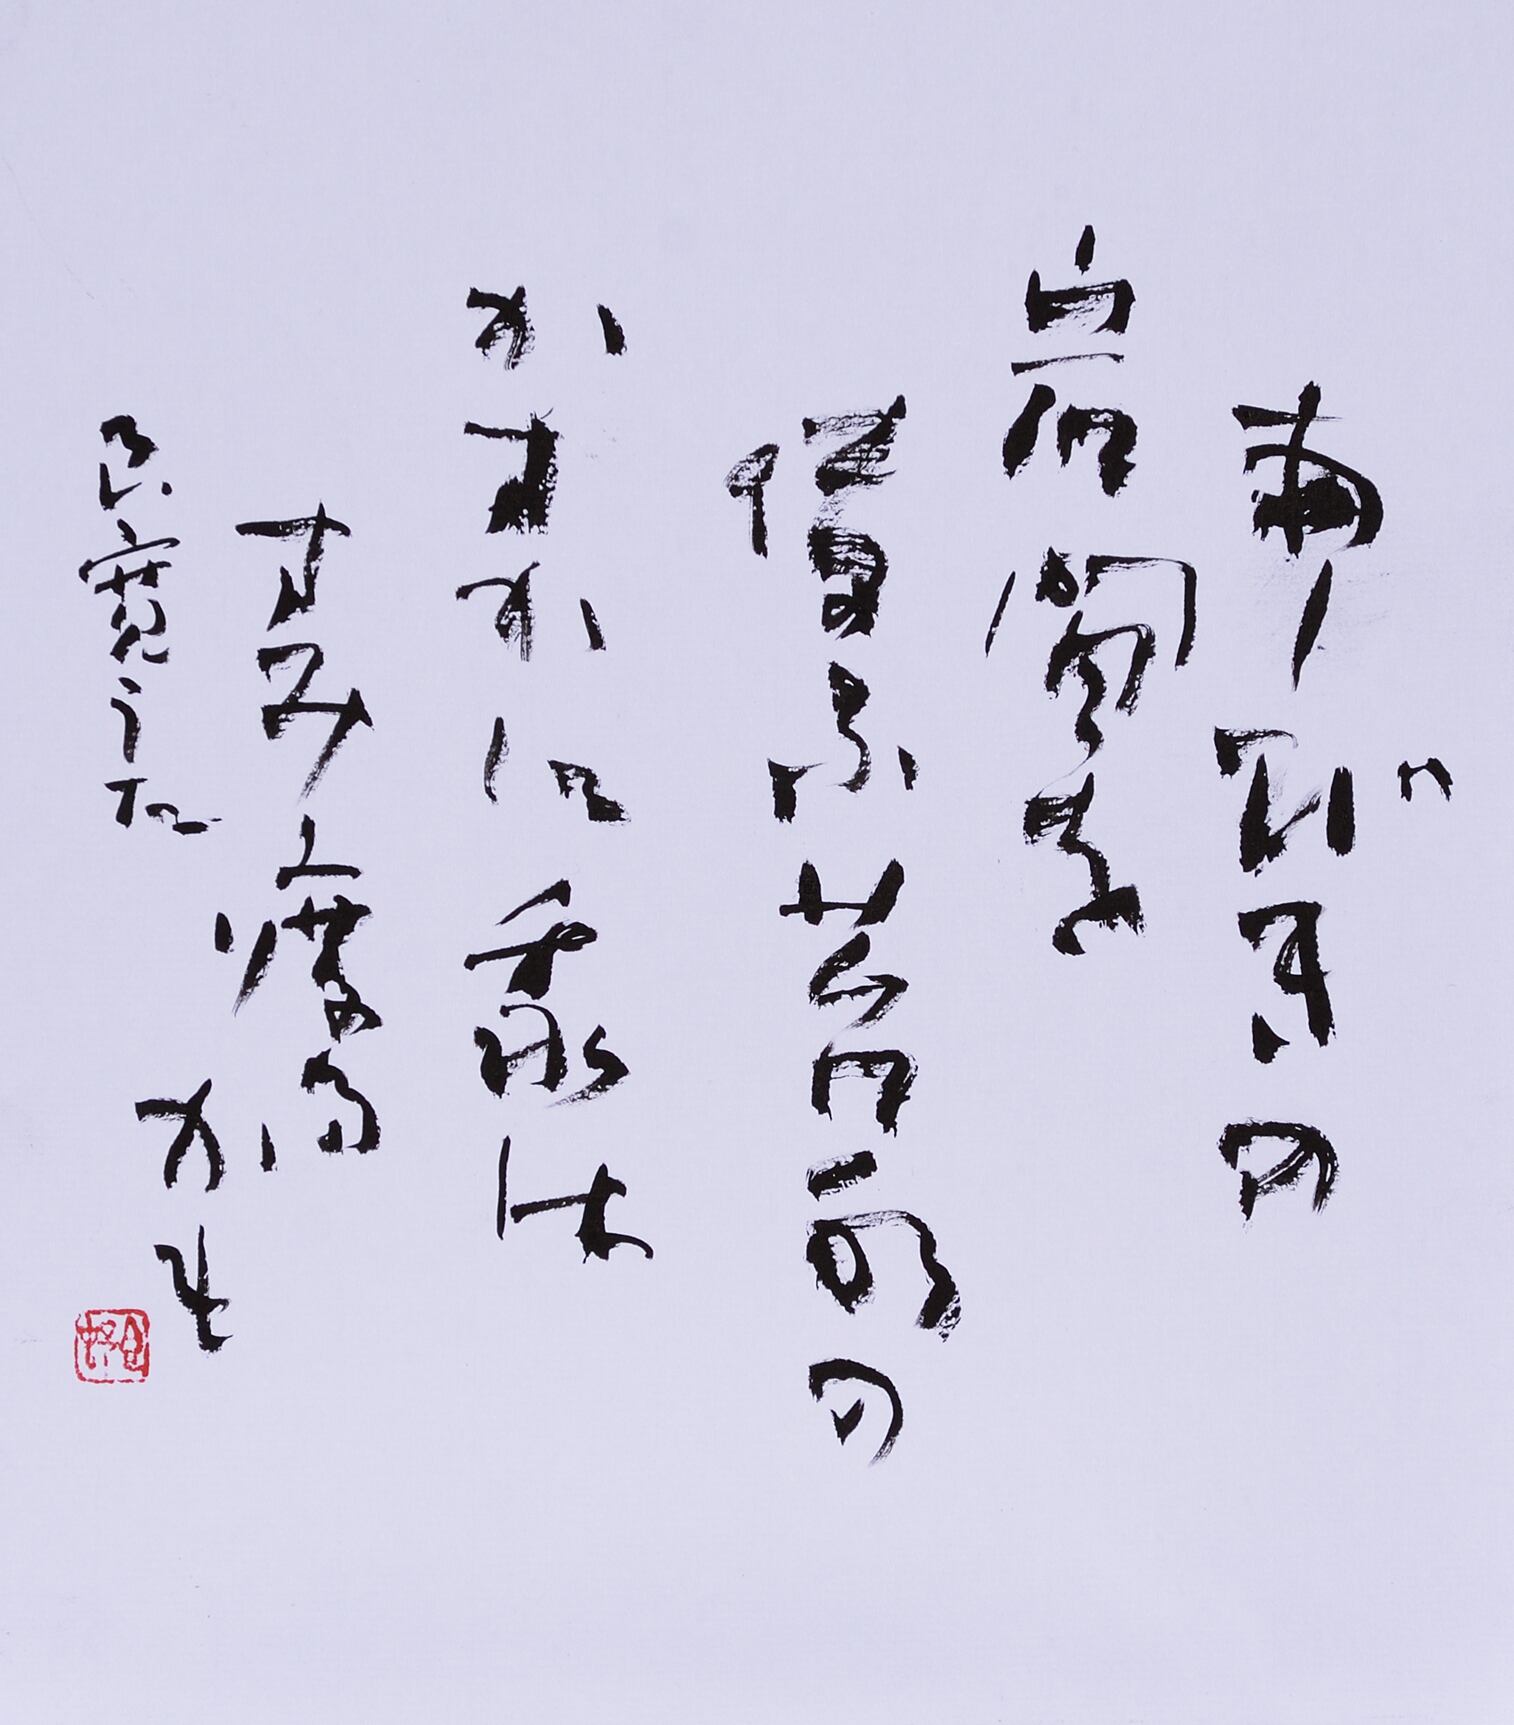 あしびきの
岩間を
傳ふ苔水の
かすかに我は
すみ渡るかも
良寛うた